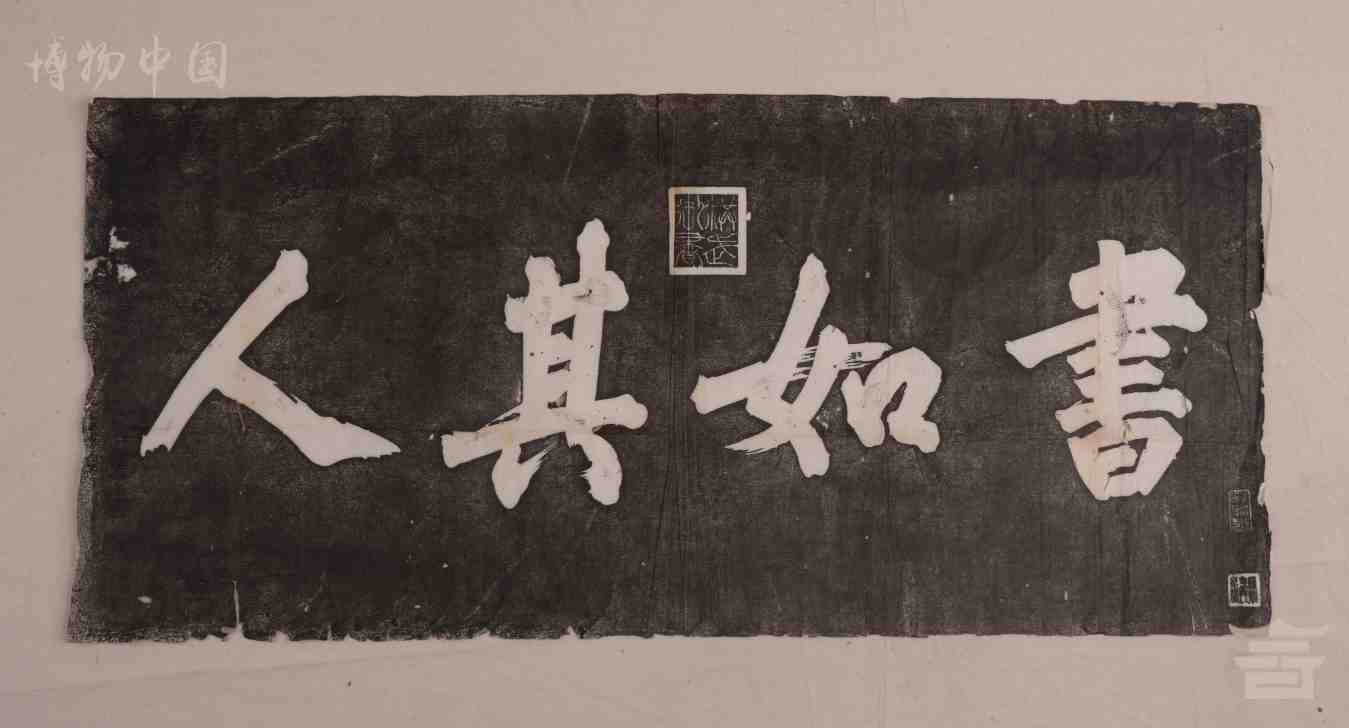 博物中国
書如其人